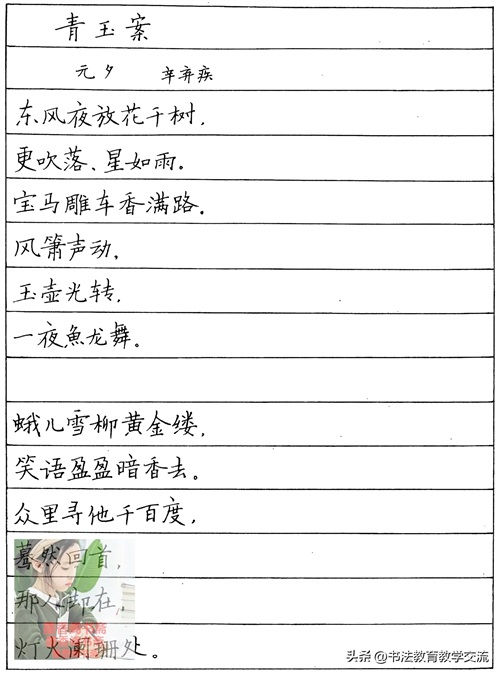 青玉案
元夕 辛弃疾
东风夜放花千树，
更吹落、星如雨。
宝马雕车香满路。
风箫声动，
玉壶光转，
一夜魚龙舞。
蛾儿雪柳黄金缕，
笑语盈盈暗香去。
众里寻他千百度，
蓦然回首，
那人却在，
灯火阑珊处。
头条@书法教育教学交流